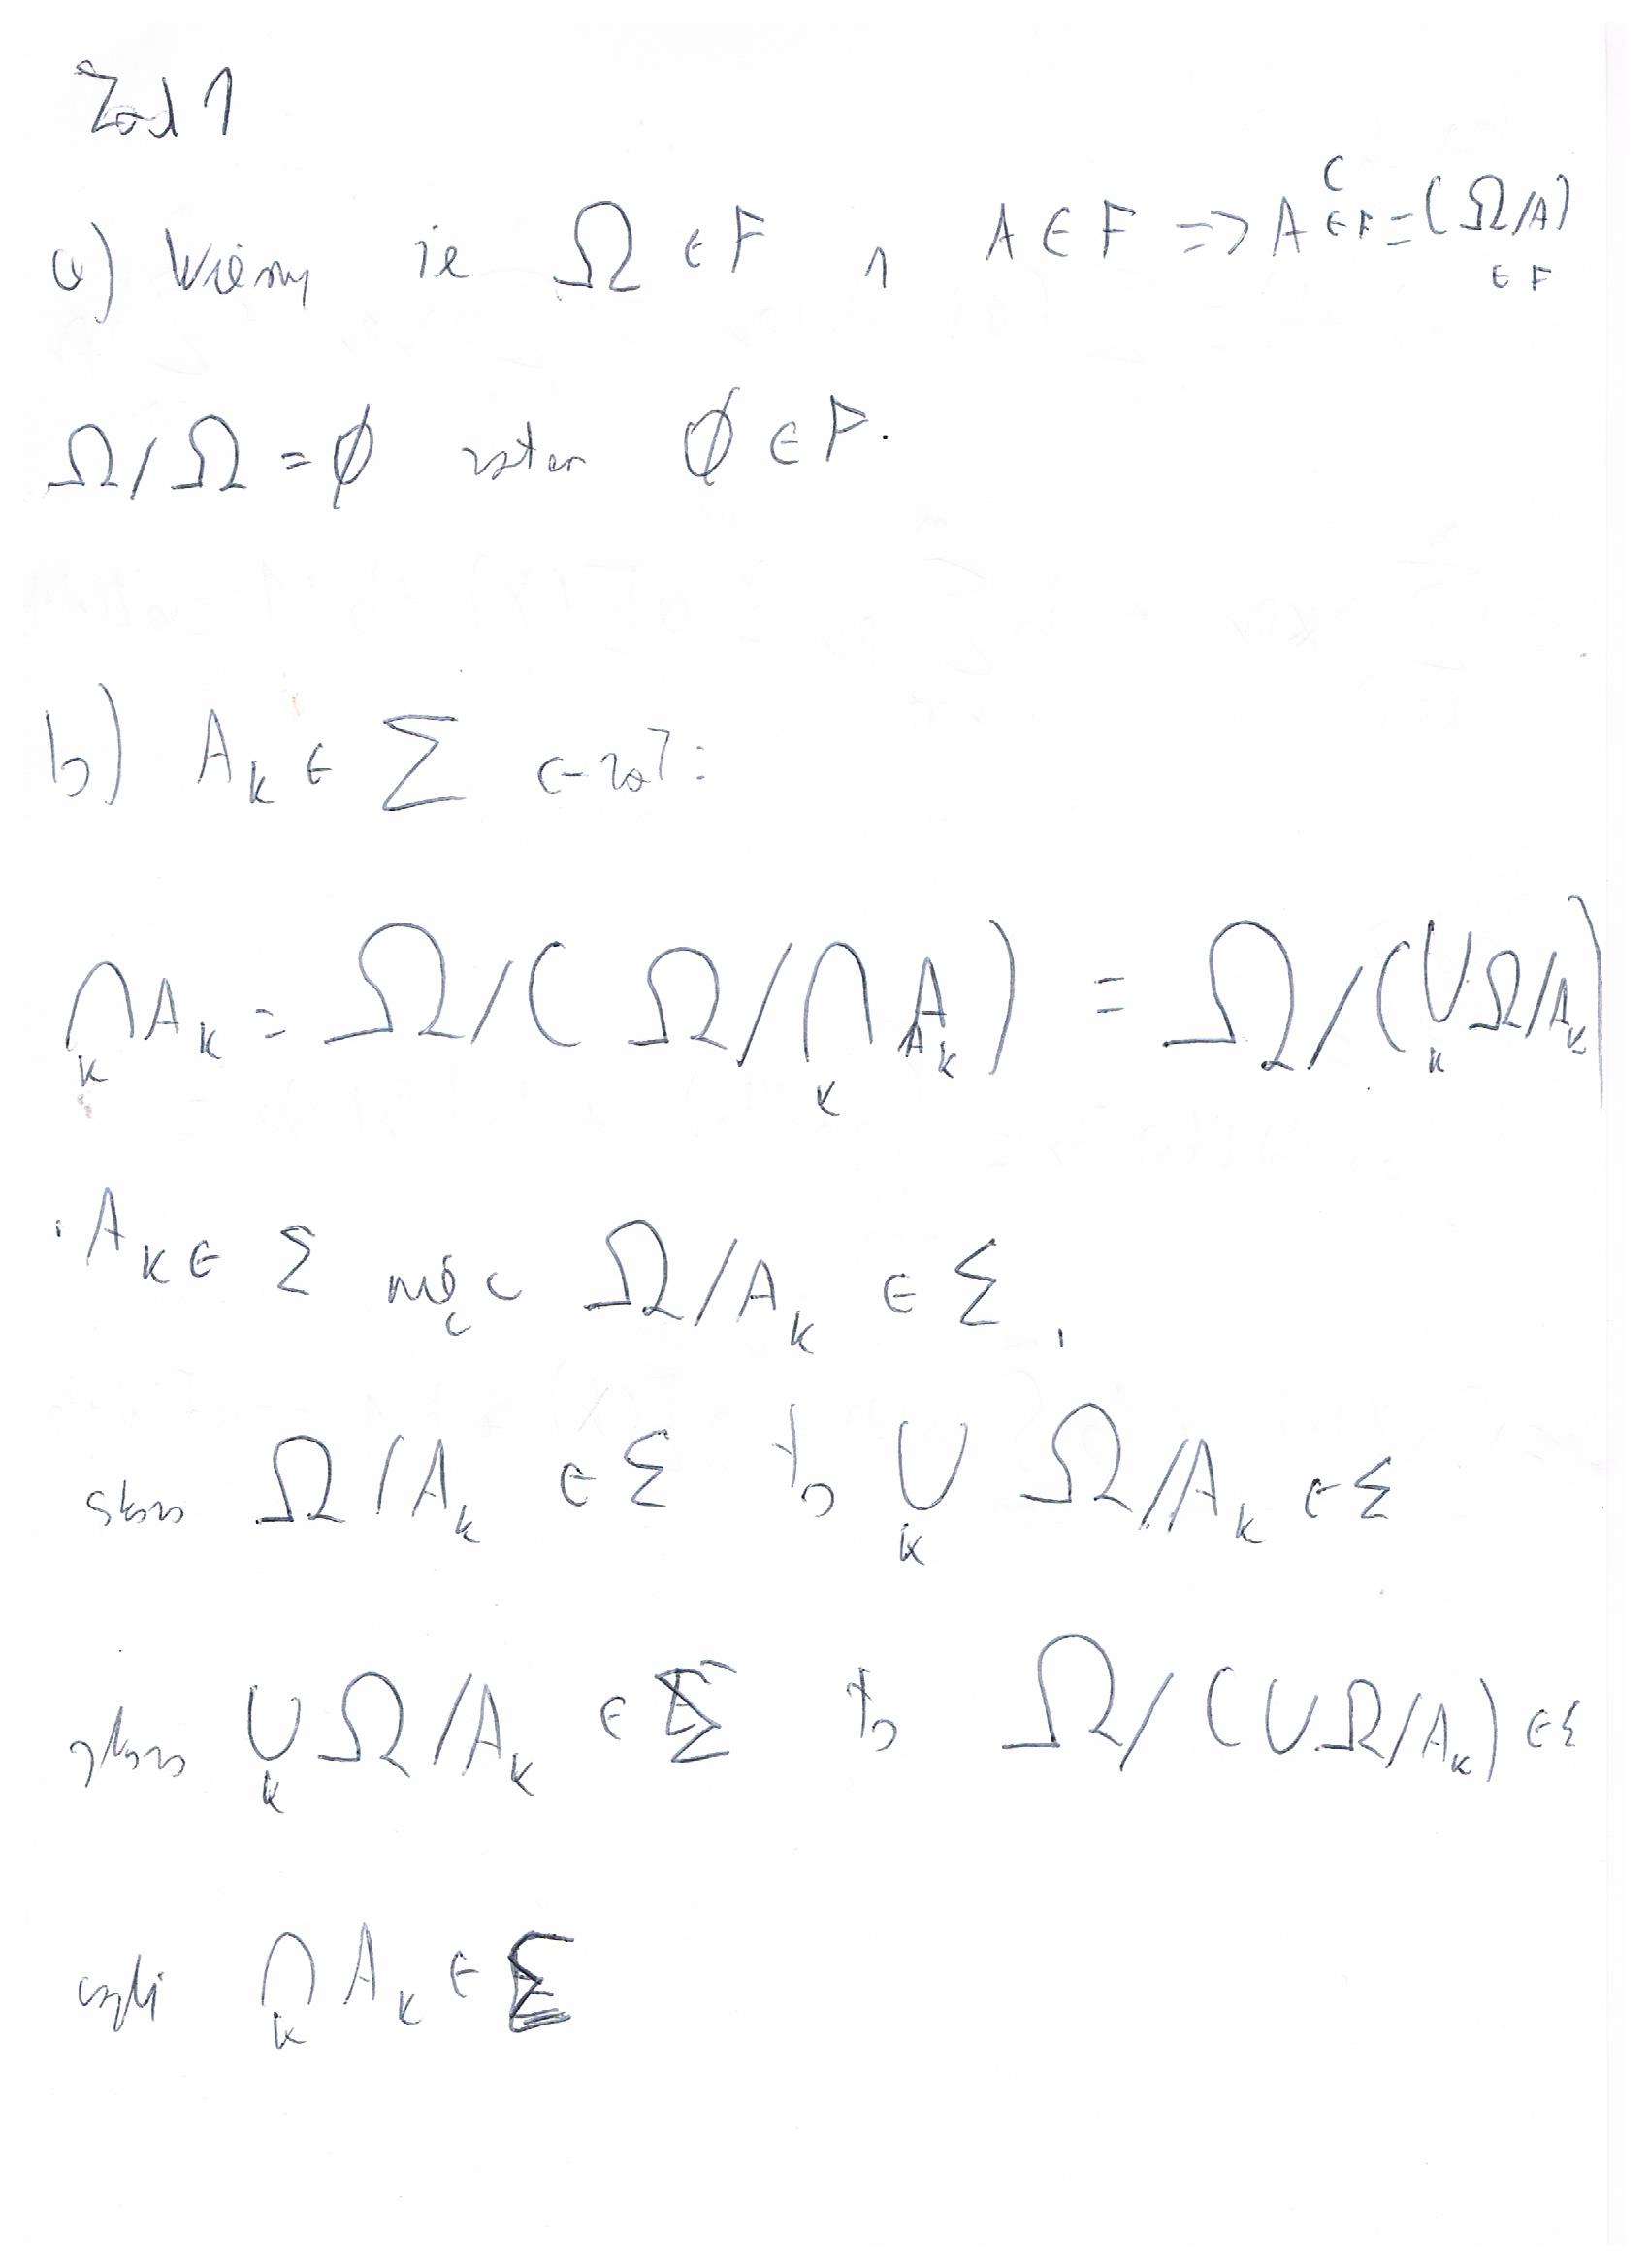 Zad 1
a) Wiemy że Ω ∈ F ∧ A ∈ F => A^C ∈ F = (Ω/A) ∈ F
Ω/Ω = ∅ zatem ∅ ∈ F.
b) A_k ∈ Σ ← zał:
⋂_k A_k = Ω/(Ω/⋂_k A_k) = Ω/(⋃_k Ω/A_k)
A_k ∈ Σ więc Ω/A_k ∈ Σ,
skoro Ω/A_k ∈ Σ to ⋃_k Ω/A_k ∈ Σ
skoro ⋃_k Ω/A_k ∈ Σ to Ω/(⋃Ω/A_k) ∈ Σ
czyli ⋂_k A_k ∈ Σ